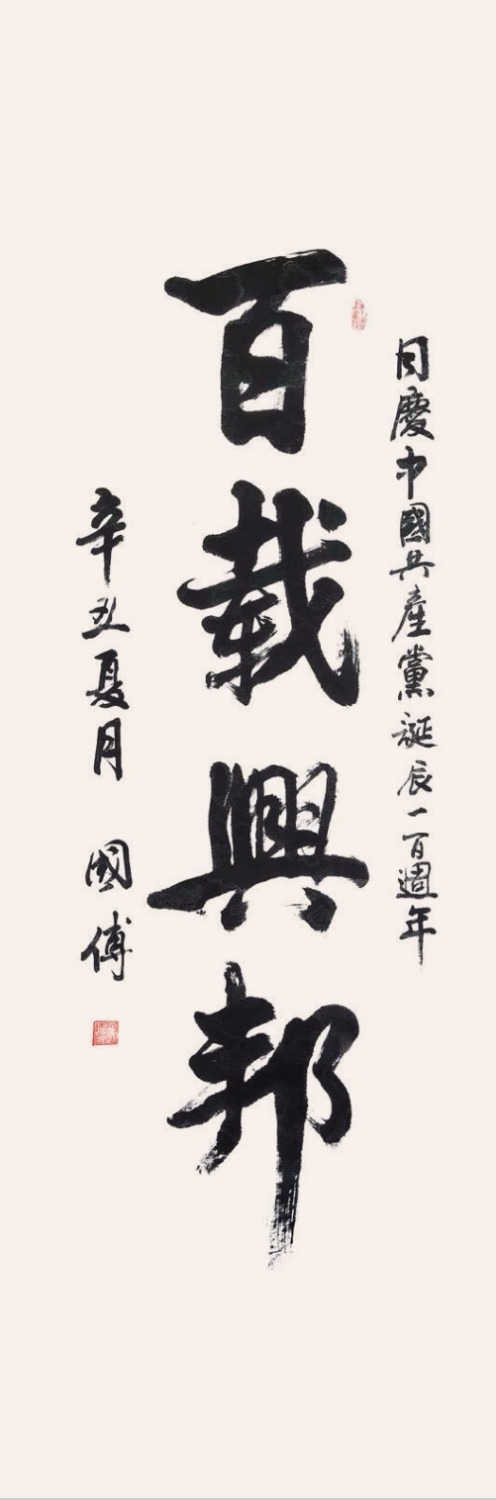 同慶中國共產黨誕辰一百週年
百載興邦
辛丑夏月 國傅